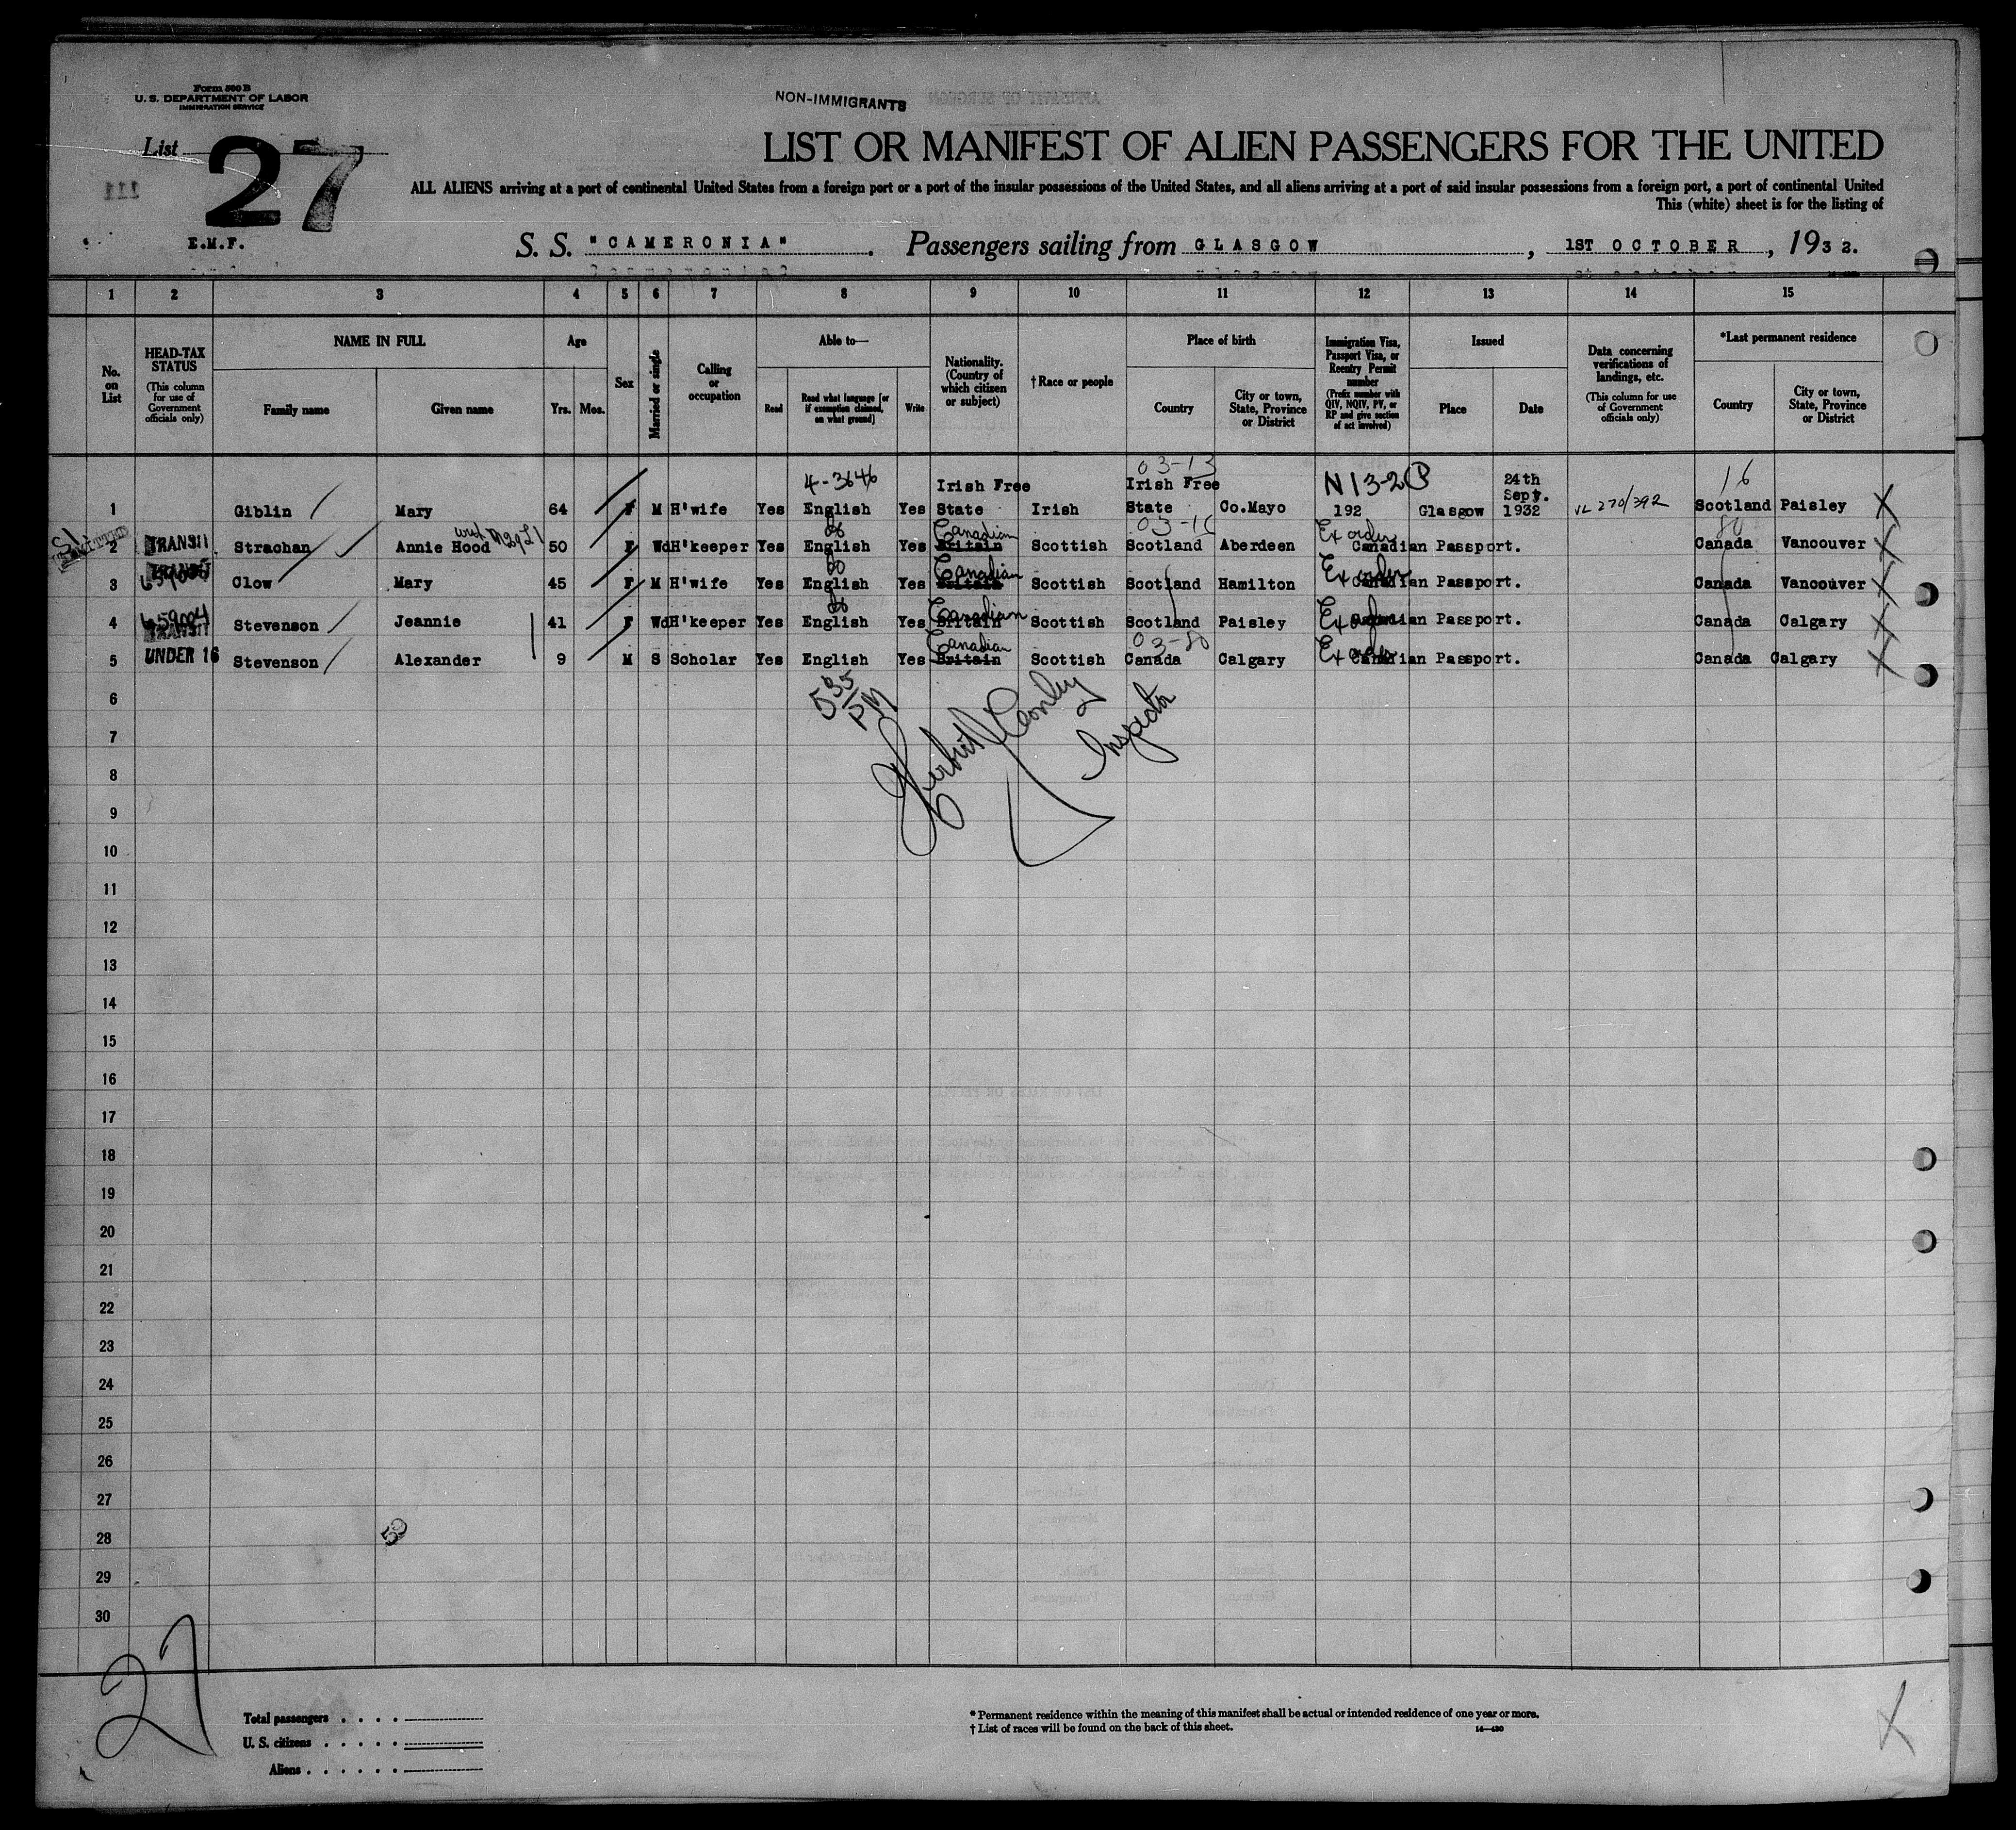 Form 500 B
U. S. DEPARTMENT OF LABOR
IMMIGRATION SERVICE
NON-IMMIGRANTS
List 27
LIST OR MANIFEST OF ALIEN PASSENGERS FOR THE UNITED
ALL ALIENS arriving at a port of continental United States from a foreign port or a port of the insular possessions of the United States, and all aliens arriving at a port of said insular possessions from a foreign port, a port of continental United
This (white) sheet is for the listing of
E.M.F.
S. S. "CAMERONIA". Passengers sailing from GLASGOW, 1ST OCTOBER, 1932.
1 2 3 4 5 6 7 8 9 10 11 12 13 14 15
No. on List
HEAD-TAX STATUS (This column for use of Government officials only)
NAME IN FULL
Family name Given name
Age
Yrs. Mos.
Sex
Married or single
Calling or occupation
Able to—
Read Read what language [or if exemption claimed, on what ground] Write
Nationality. (Country of which citizen or subject)
†Race or people
Place of birth
Country City or town, State, Province or District
Immigration Visa, Passport Visa, or Reentry Permit number (Prefix number with QIV, NQIV, PV, or RP and give section of act involved)
Issued
Place Date
Data concerning verifications of landings, etc. (This column for use of Government officials only)
*Last permanent residence
Country City or town, State, Province or District
4-3646 03-13 N13-2 P 16
1 Giblin Mary 64 F M H'wife Yes English Yes Irish Free State Irish Irish Free State Co.Mayo 192 Glasgow 24th Sept. 1932 VL 270/392 Scotland Paisley X
Canadian Ex order 80
2 TRANSIT Strachan Annie Hood 50 F Wd H'keeper Yes English Yes Britain Scottish Scotland Aberdeen Canadian Passport. Canada Vancouver X
Canadian Ex order
3 TRANSIT Clow Mary 45 F M H'wife Yes English Yes Britain Scottish Scotland Hamilton Canadian Passport. Canada Vancouver X
Canadian Ex order
4 659004 TRANSIT Stevenson Jeannie 41 F Wd H'keeper Yes English Yes Britain Scottish Scotland Paisley Canadian Passport. Canada Calgary X
Canadian 03-80 Ex order
5 UNDER 16 Stevenson Alexander 9 M S Scholar Yes English Yes Britain Scottish Canada Calgary Canadian Passport. Canada Calgary X
6
5 35 PM
Inspector
7
8
9
10
11
12
13
14
15
16
17
18
19
20
21
22
23
24
25
26
27
28
53
29
30
27
Total passengers . . . .
U. S. citizens . . . . .
Aliens . . . . . .
* Permanent residence within the meaning of this manifest shall be actual or intended residence of one year or more.
† List of races will be found on the back of this sheet.
14—430
X